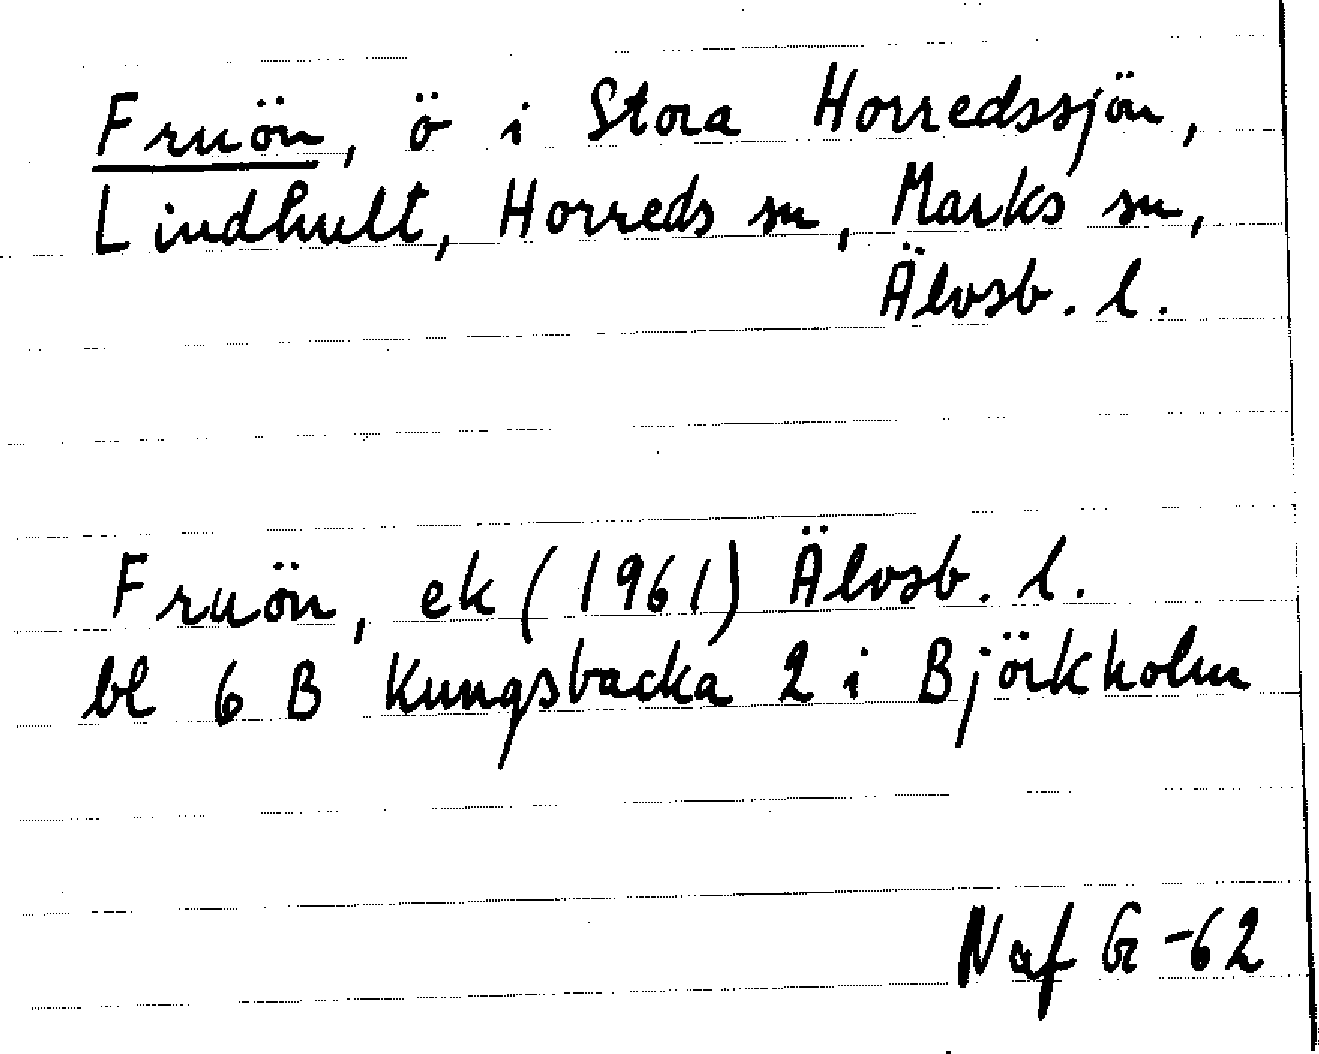 Fruön, ö i Stora Horredssjön,
Lindhult, Horreds sn, Marks sn,
Älvsb. l.
Fruön, ek (1961) Älvsb. l.
bl 6 B Kungsbacka 2 i Björkholm
Naf G-62